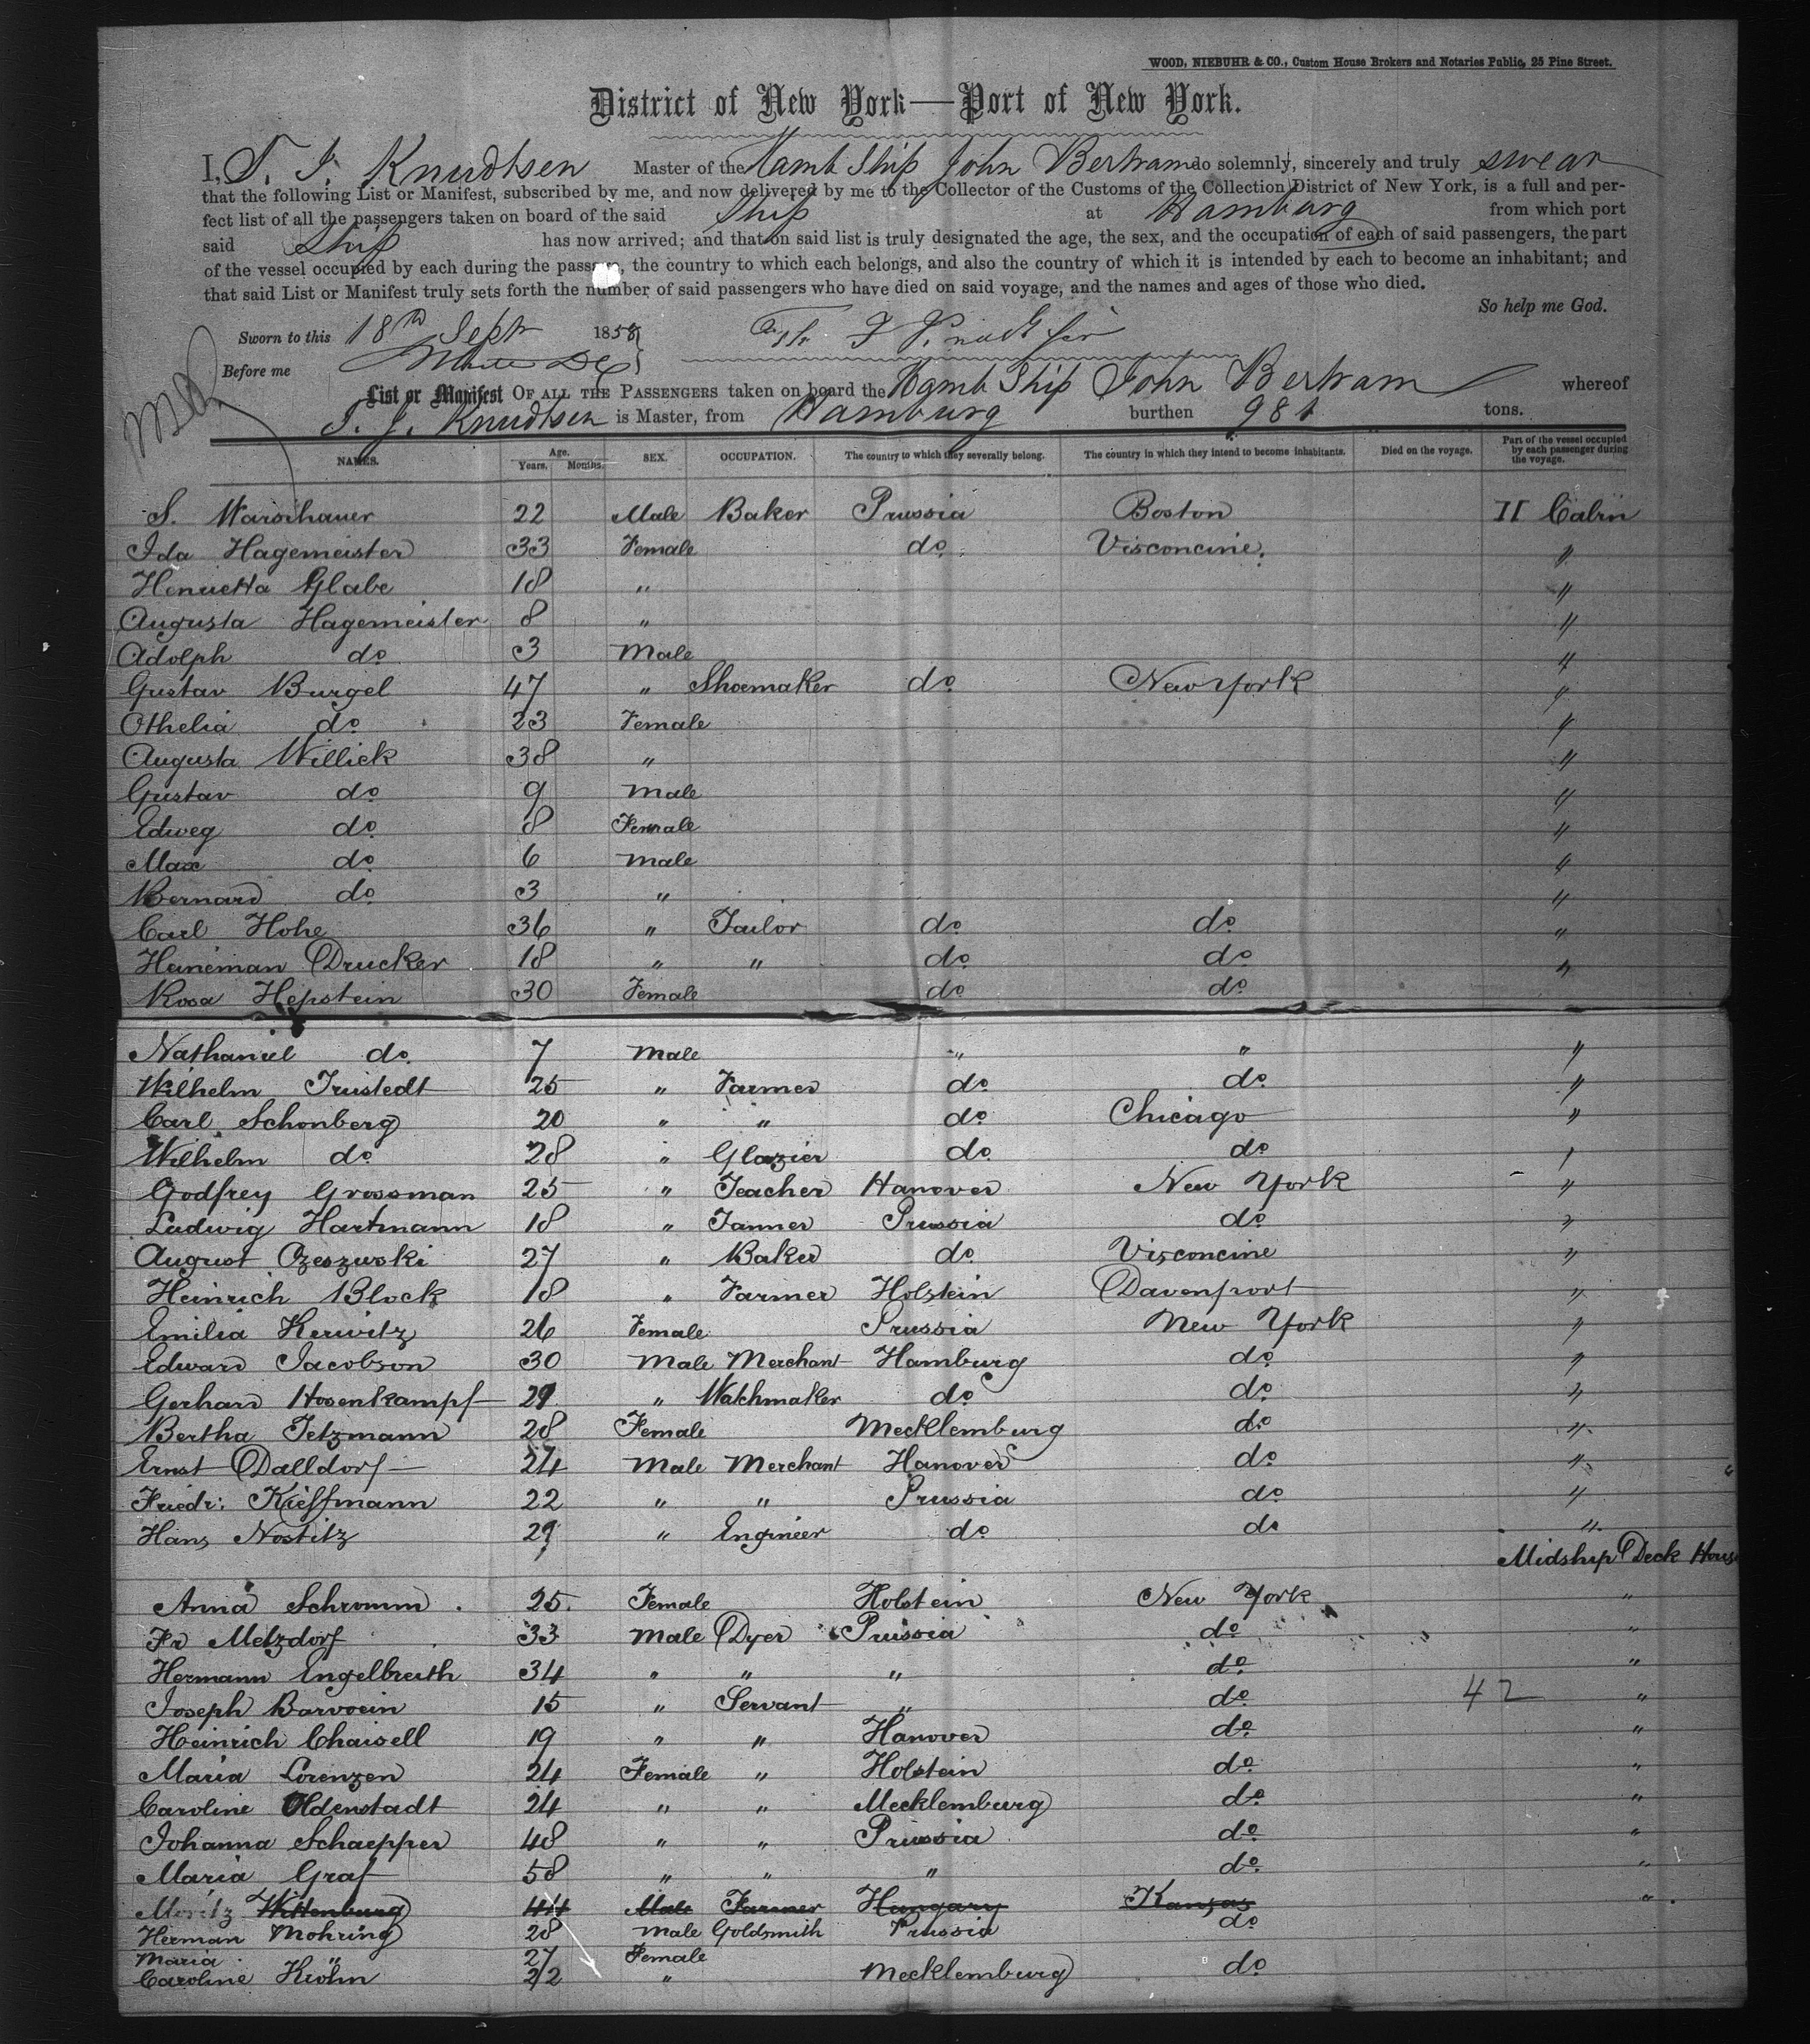 WOOD, NIEBUHR & CO., Custom House Brokers and Notaries Public, 25 Pine Street.
District of New York—Port of New York.
I, T. J. Knudtsen Master of the Hamb Ship John Bertram do solemnly, sincerely and truly swear
that the following List or Manifest, subscribed by me, and now delivered by me to the Collector of the Customs of the Collection District of New York, is a full and per-
fect list of all the passengers taken on board of the said Ship at Hamburg from which port
said Ship has now arrived; and that on said list is truly designated the age, the sex, and the occupation of each of said passengers, the part
of the vessel occupied by each during the passage, the country to which each belongs, and also the country of which it is intended by each to become an inhabitant; and
that said List or Manifest truly sets forth the number of said passengers who have died on said voyage, and the names and ages of those who died.
So help me God.
Sworn to this 18th Sept 1858
Before me
List or Manifest OF ALL THE PASSENGERS taken on board the Hamb Ship John Bertram whereof
T. J. Knudtsen is Master, from Hamburg burthen 981 tons.
NAMES. Age. Years. Months. SEX. OCCUPATION. The country to which they severally belong. The country in which they intend to become inhabitants. Died on the voyage. Part of the vessel occupied by each passenger during the voyage.
S. Warschauer 22 Male Baker Prussia Boston II Cabin
Ida Hagemeister 33 Female do Visconcine. "
Henrietta Glabe 18 " "
Augusta Hagemeister 8 " "
Adolph do 3 Male "
Gustav Burgel 47 " Shoemaker do New York "
Othelia do 23 Female "
Augusta Willick 38 " "
Gustav do 9 Male "
Edweg do 8 Female "
Max do 6 Male "
Bernard do 3 " "
Carl Hohe 36 " Tailor do do "
Heineman Drucker 18 " " do do "
Rosa Hepstein 30 Female do do
Nathaniel do 7 Male " " "
Wilhelm Trustedt 25 " Farmer do do "
Carl Schonberg 20 " " do Chicago "
Wilhelm do 28 " Glazier do do "
Godfrey Grossman 25 " Teacher Hanover New York "
Ludwig Hartmann 18 " Tanner Prussia do "
August Czeszwski 27 " Baker do Visconcine "
Heinrich Block 18 " Farmer Holstein Davenport "
Emilia Kerwitz 26 Female Prussia New York "
Edward Jacobson 30 Male Merchant Hamburg do "
Gerhard Hosenkampf 29 " Watchmaker do do "
Bertha Tetzmann 28 Female Mecklemburg do "
Ernst Dalldorf 24 Male Merchant Hanover do "
Friedr: Kieffmann 22 " " Prussia do "
Hans Nostitz 29 " Engineer do do "
Midship Deck House
Anna Schromm 25 Female Holstein New York "
Fr Metzdorf 33 Male Dyer Prussia do "
Hermann Engelbreith 34 " " " do "
Joseph Barvoein 15 " Servant " do 42 "
Heinrich Chaisell 19 " " Hanover do "
Maria Lorenzen 24 Female " Holstein do "
Caroline Oldenstadt 24 " " Mecklemburg do "
Johanna Schaepper 48 " " Prussia do "
Maria Graf 58 " " " do "
Moritz Wittenburg 44 Male Farmer Hungary Kansas "
Herman Mohring 28 Male Goldsmith Prussia do
Maria " 27 Female
Caroline Krohn 22 " Mecklemburg do